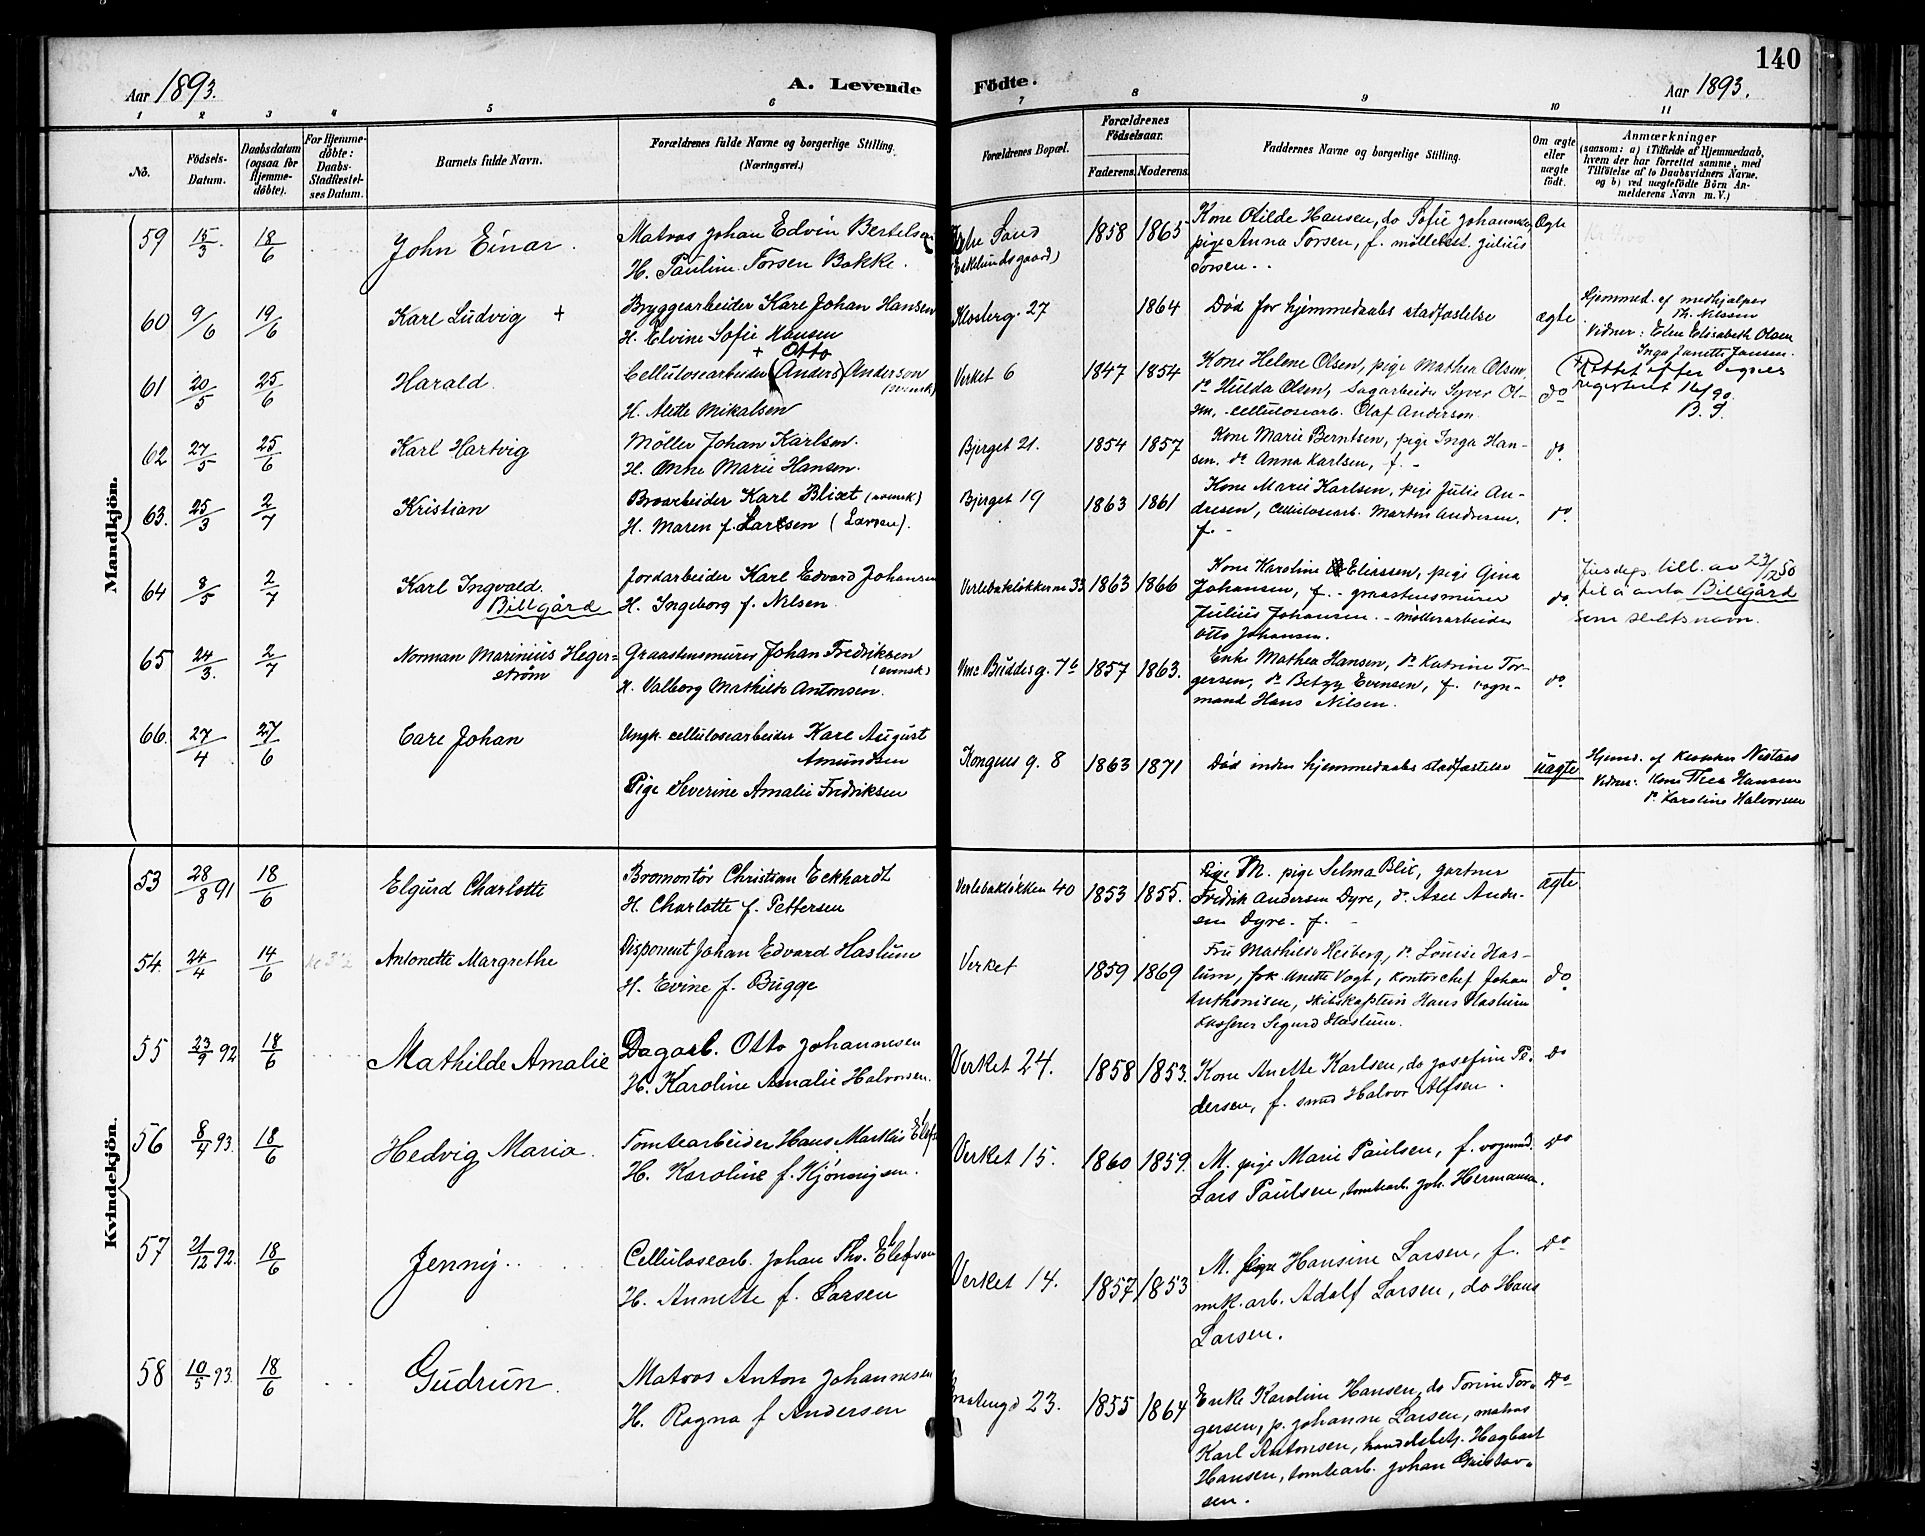 140
Aar 1893.
A. Levende Fødte.
Aar 1893.
1 2 3 4 5 6 7 8 9 10 11
No.
Fødsels-Datum.
Daabsdatum (ogsaa for Hjemme-døbte).
For Hjemme-døbte: Daabs-Stadfæstel-ses Datum.
Barnets fulde Navn.
Forældrenes fulde Navne og borgerlige Stilling. (Næringsvei.)
Forældrenes Bopæl.
Forældrenes Fødselsaar.
Faderens. Moderens.
Faddernes Navne og borgerlige Stilling.
Om ægte eller uægte født.
Anmærkninger
(saasom: a) i Tilfælde af Hjemmedaab,
hvem der har forrettet samme, med
Tilføielse af to Daabsvidners Navne,
og b) ved uægtefødte Børn An-
melderens Navn m. V.)
Mandkjøn.
59 15/3 18/6 John Einar. Matros Johan Edvin Bertelsen
H. Pauline Torsen Bakke.
Sand
(Eskelundsgaard)
1858 1865
Kone Otilde Hansen, do Sofie Johannesen
pige Anna Torsen, f. møllebest. Julius
Torsen..
Ægte
60 9/6 19/6 Karl Ludvig + Bryggearbeider Karl Johan Hansen
H. Elvine Sofie Hansen
Klosterg. 27
1864
Død før hjemmedaabs stadfæstelse
ægte
Hjemmed. af medhjælper
Th. Nilssen
Vidner: Eline Elisabeth Olsen
Inga Janette Jansen.
61 20/5 25/6 Harald.
+ Otto
Cellulosearbeider (Anders) Anderson
(svensk)
H. Alette Mikalsen
Verket 6
1847 1854
Kone Helene Olsen, pige Mathea Olsen,
do Hulda Olsen, Sagarbeider Syver Ol-
sen, cellulosearb. Olaf Anderson.
do
Rettet efter
registeret
B. S.
62 27/5 25/6 Karl Hartvig
Møller Johan Karlsen.
H. Anne Marie Hansen.
Bjerget 21.
1854 1857
Kone Marie Berntsen, pige Inga Han-
sen. do Anna Karlsen, f. -
do.
63. 25/3 2/7 Kristian
Broarbeider Karl Blixt (svensk)
H. Maren f. Larsen (Larsen).
Bjerget 19
1863 1861
Kone Marie Karlsen, pige Julie An-
dresen, cellulosearb. Martin Andresen,
f. -
do
64 8/5 2/7 Karl Ingvald.
Billgård
Jordarbeider Karl Edvard Johansen
H. Ingeborg f. Nilsen.
Verlebakløkkerne 33
1863 1866
Kone Karoline Eliassen, pige Gina
Johansen, f. - graastensmurer
Julius Johansen. - møllerarbeider
Otto Johansen.
do.
Jusdep. till. av 23/12 50
til å anta Billgård
som slektsnavn.
65 24/3. 2/7 Norman Marinius Heger-
strøm
Graastensmurer Johan Fredriksen
(svensk)
H. Valborg Mathilde Antonsen.
Vinc Buddesg. 7b
1857 1863.
Enke Mathea Hansen, do Katrine Tor-
gersen, do Betzy Evensen, f. vogn-
mand Hans Nilsen.
do.
66. 27/4 27/6 Carl Johan
Ungk. cellulosearbeider Karl August
Amundsen
Pige Severine Amalie Fredriksen
Kongens g. 8
1863 1871
Død inden hjemmedaabs stadfæstelse
uægte
Hjemd. af Nestaas
Vidner: Kone Thea Hansen
do Karoline Halvorsen
Kvindekjøn.
53 28/8 91 18/6 Elgurd Charlotte
Bromontør Christian Eckhardt
H. Charlotte f. Pettersen
Verlebakløkken 40
1853 1855.
M. pige Selma Blix, gartner
Fredrik Andersen Dyre, do. Axel Ander-
sen Dyre. f. -
ægte
54. 24/4 14/6 Antonette Margrethe
Disponent Johan Edvard Haslum
H. Evine f. Bugge
Verket
1859 1869
Fru Mathilde Heiberg, do Louise Has-
lum, frk Anette Vogt, kontorchef Johan
Anthonisen, skibskaptein Hans Haslum
kasserer Sigurd Haslum.
do
55 23/9 92 18/6 Mathilde Amalie
Dagarb. Otto Johannesen
H. Karoline Amalie Halvorsen.
Verket 24.
1858 1853.
Kone Anette Karlsen, do Josefine Pe-
dersen, f. smed Halvor Alfsen.
Do
56 8/4 93. 18/6 Hedvig Maria.
Tomtearbeider Hans Markus
H. Karoline f. Kjønnigsen.
Verket 15.
1860 1859.
M. pige Marie Paulsen, f. vognmd.
Lars Paulsen, tomtearb. Joh. Hermansen.
Do
57 21/12 92. 18/6 Jenny..
Cellulosearb. Johan Thv. Elefson
H. Annette f. Larsen
Verket 14.
1857 1853
M. pige Hansine Larsen, f.
mek. arb. Adolf Larsen, do Hans
Larsen.
Do
58 10/5 93. 18/6 Gudrun.
Matros Anton Johannesen
H. Ragna f Andersen
23.
1855 1864
Enke Karoline Hansen, do Torine Tor-
gersen, p. Johanne Larsen, matros
Karl Antonsen, handelsbetj. Hagbart
Hansen, tomtearb. Johan Gustav-
sen.
Do